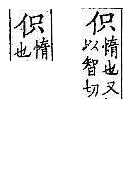 伿
惰也又
以智切
伿
惰
也